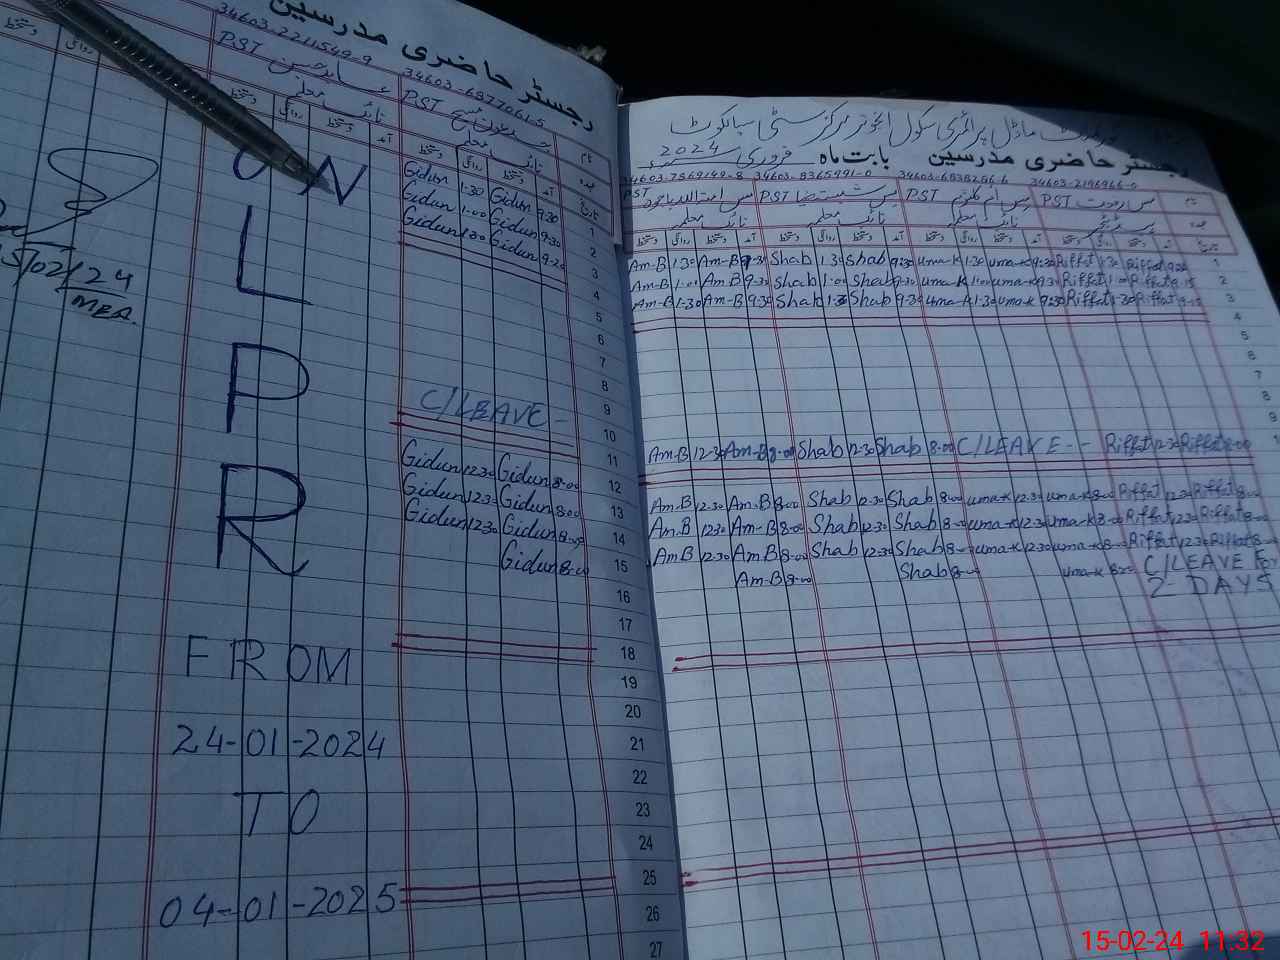 رجسٹر حاضری مدرسین
34603-2211549-9
34603-6877061-5
PST عابد حسین
PST
نائب معلم
نام
عہدہ
تاریخ
آمد دستخط روانگی دستخط
Gidun 1-30 Gidun 9-30 1
Gidun 1-00 Gidun 9-30 2
Gidun 1-30 Gidun 9-20 3
4
5
6
7
8
C/LEAVE - 9
10
Gidun 12-30 Gidun 8-00 11
Gidun 12-30 Gidun 8-00 12
Gidun 12-30 Gidun 8-00 13
Gidun 8-00 14
15
16
17
18
19
20
21
22
23
24
25
26
27
ON
L
P
R
FROM
24-01-2024
TO
04-01-2025
15/02/24
MEA.
ماڈل پرائمری سکول
رجسٹر حاضری مدرسین بابت ماہ فروری 2024
34603-7869149-8 34603-8365991-0 34603-6838256-6 34603-2196966-0
PST PST PST PST
نام
عہدہ
تاریخ
Am-B 1-30 Am-B 9-30 Shab 1-30 Shab 9-30 uma-K 1-30 uma-K 9-30 Riffat 1-30 Riffat 9-20 1
Am-B 1-00 Am-B 9-30 Shab 1-00 Shab 9-30 uma-K 1-00 uma-K 9-30 Riffat 1-00 Riffat 9-15 2
Am-B 1-30 Am-B 9-30 Shab 1-30 Shab 9-30 uma-K 1-30 uma-K 9-30 Riffat 1-30 Riffat 9-15 3
4
5
6
7
8
9
Am-B 12-30 Am-B 8-00 Shab 12-30 Shab 8-00 C/LEAVE - - Riffat 12-30 Riffat 8-00
Am-B 12-30 Am-B 8-00 Shab 12-30 Shab 8-00 uma-K 12-30 uma-K 8-00 Riffat 12-30 Riffat 8-00
Am-B 12-30 Am-B 8-00 Shab 12-30 Shab 8-00 uma-K 12-30 uma-K 8-00 Riffat 12-30 Riffat 8-00
Am-B 12-30 Am-B 8-00 Shab 12-30 Shab 8-00 uma-K 12-30 uma-K 8-00 Riffat 12-30 Riffat 8-00
Am-B 8-00 Shab 8-00 uma-K C/LEAVE For
2-DAYS
15-02-24 11:32